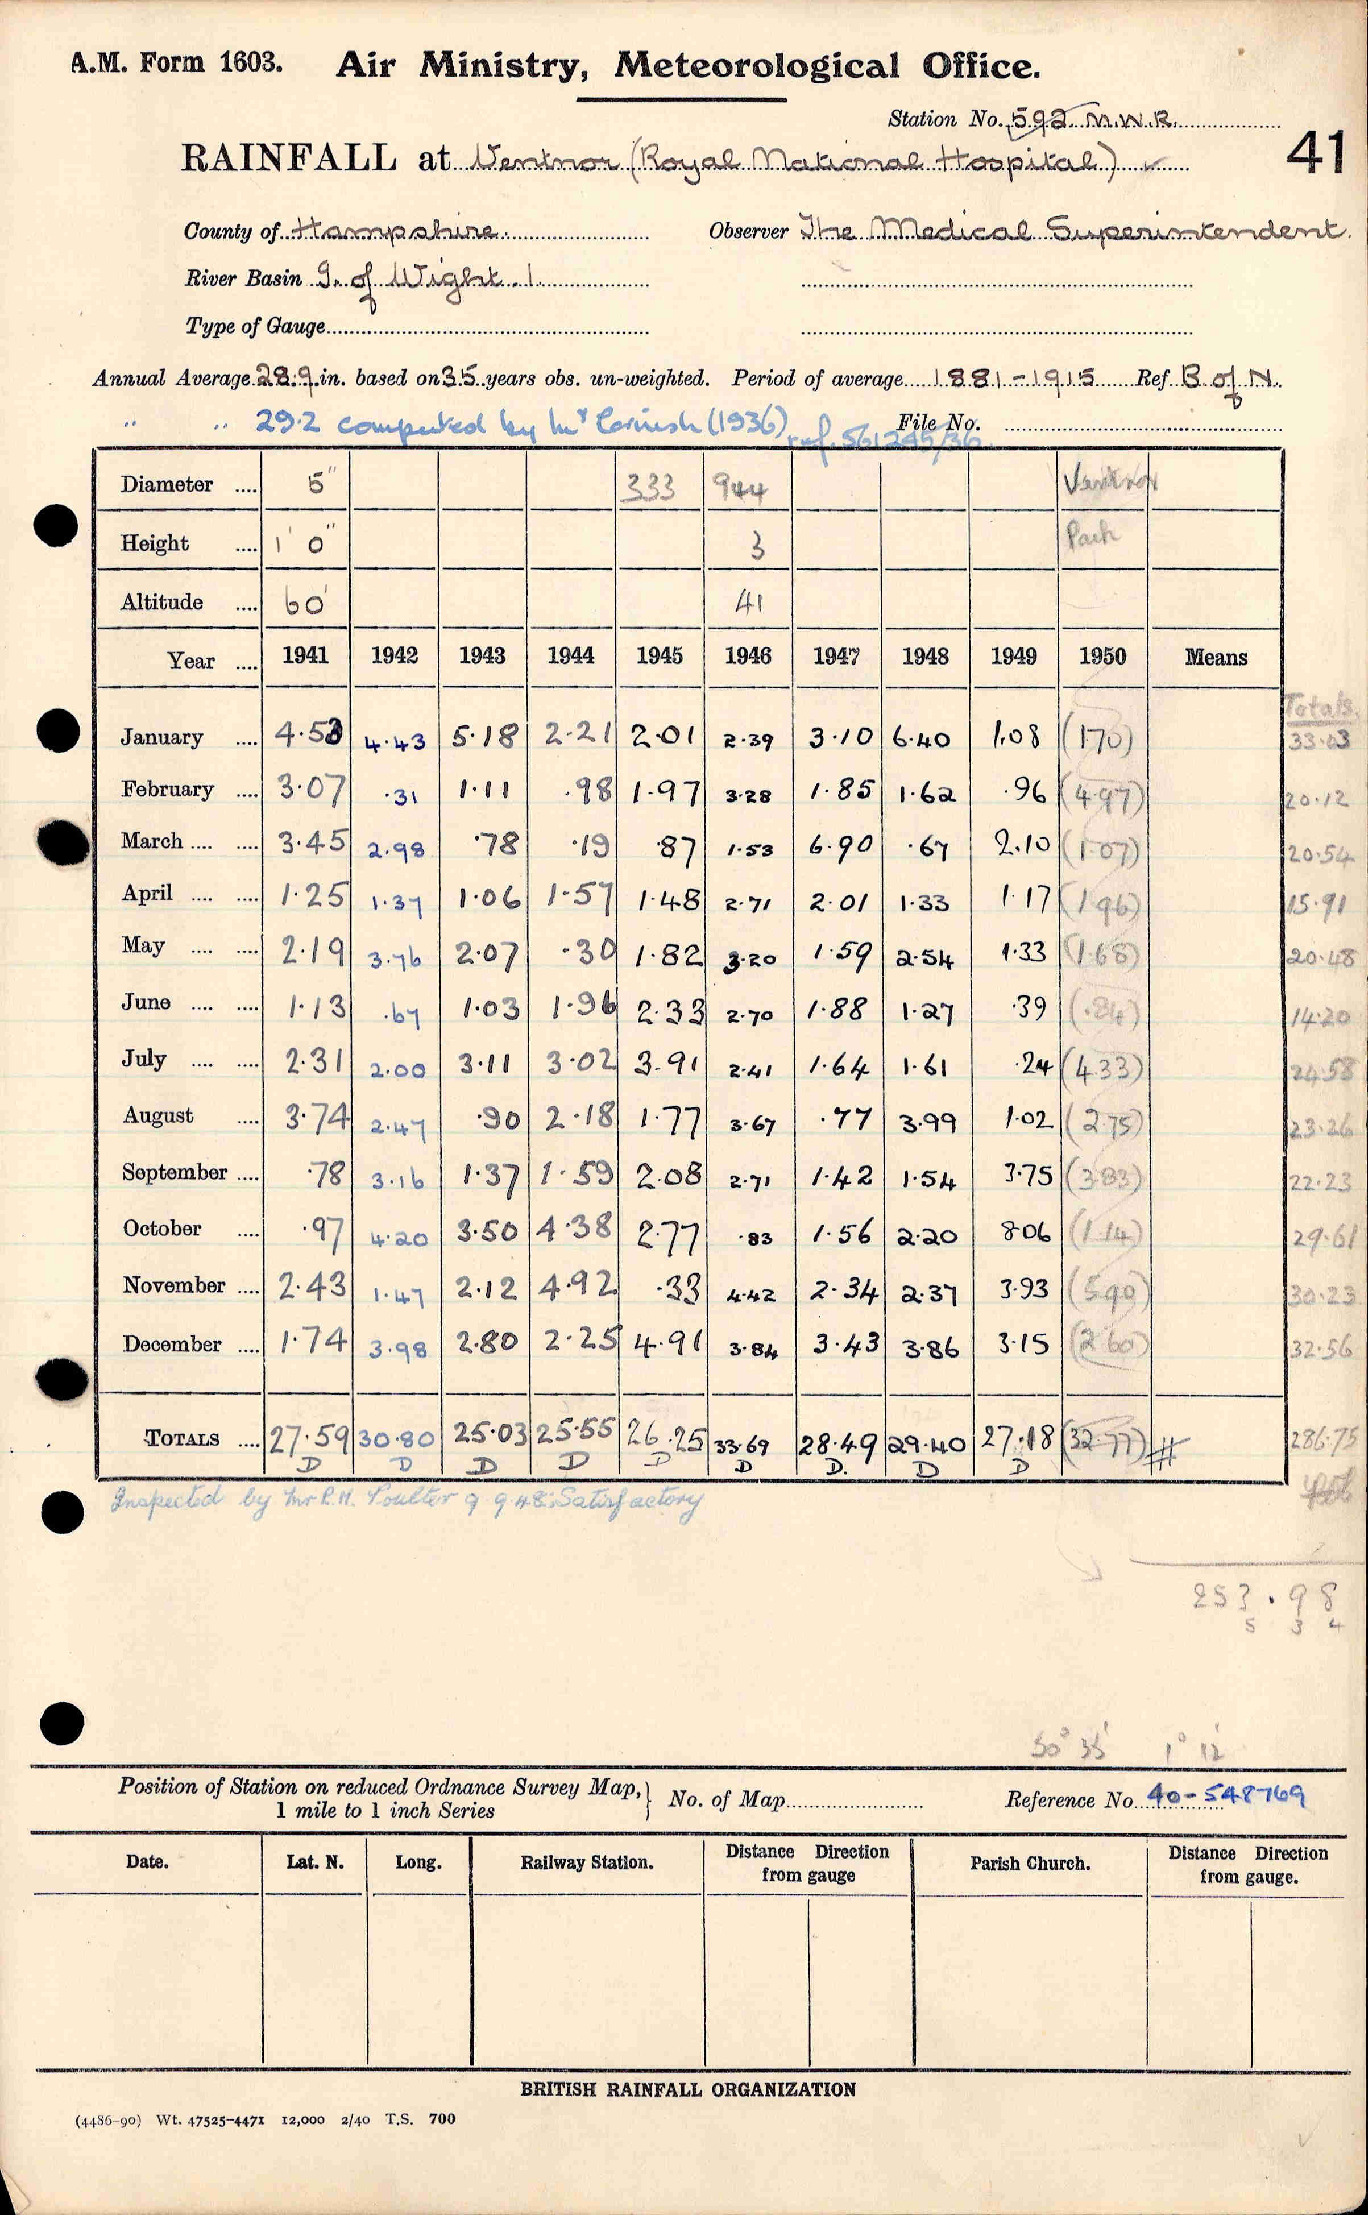 A.M. Form 1603. Air Ministry, Meteorological Office.
Station No. 592 M.W.R.
41
RAINFALL at Ventnor (Royal National Hospital)
County of Hampshire. Observer The Medical Superintendent.
River Basin I. of Wight. 1.
Type of Gauge
Annual Average 28.9 in. based on 35 years obs. un-weighted. Period of average 1881-1915 Ref B of N.
" " 29.2 computed by Mr Cornish (1936) ref. 561245/36. File No.
Diameter 5" 333 944 Ventnor
Height 1' 0" 3 Park
Altitude 60' 41
Year 1941 1942 1943 1944 1945 1946 1947 1948 1949 1950 Means
Totals
January 4.53 4.43 5.18 2.21 2.01 2.39 3.10 6.40 1.08 (1.70) 33.03
February 3.07 .31 1.11 .98 1.97 3.28 1.85 1.62 .96 (4.97) 20.12
March 3.45 2.98 .78 .19 .87 1.53 6.90 .67 2.10 (1.07) 20.54
April 1.25 1.37 1.06 1.57 1.48 2.71 2.01 1.33 1.17 (1.96) 15.91
May 2.19 3.76 2.07 .30 1.82 3.20 1.59 2.54 1.33 (1.68) 20.48
June 1.13 .67 1.03 1.96 2.33 2.70 1.88 1.27 .39 (.84) 14.20
July 2.31 2.00 3.11 3.02 3.91 2.41 1.64 1.61 .24 (4.33) 24.58
August 3.74 2.47 .90 2.18 1.77 3.67 .77 3.99 1.02 (2.75) 23.26
September .78 3.16 1.37 1.59 2.08 2.71 1.42 1.54 3.75 (3.83) 22.23
October .97 4.20 3.50 4.38 2.77 .83 1.56 2.20 8.06 (1.14) 29.61
November 2.43 1.47 2.12 4.92 .33 4.42 2.34 2.37 3.93 (5.90) 30.23
December 1.74 3.98 2.80 2.25 4.91 3.84 3.43 3.86 3.15 (2.60) 32.56
TOTALS 27.59 30.80 25.03 25.55 26.25 33.69 28.49 29.40 27.18 (32.77) 286.75
D D D D D D D. D D
Inspected by Mr R.H. Poulter 9 9.48. Satisfactory
253.98
5 3 4
50° 35' 1° 12'
Position of Station on reduced Ordnance Survey Map, 1 mile to 1 inch Series
No. of Map Reference No 40-548769
Date. Lat. N. Long. Railway Station. Distance Direction from gauge Parish Church. Distance Direction from gauge.
BRITISH RAINFALL ORGANIZATION
(4486-90) Wt. 47525-4471 12,000 2/40 T.S. 700